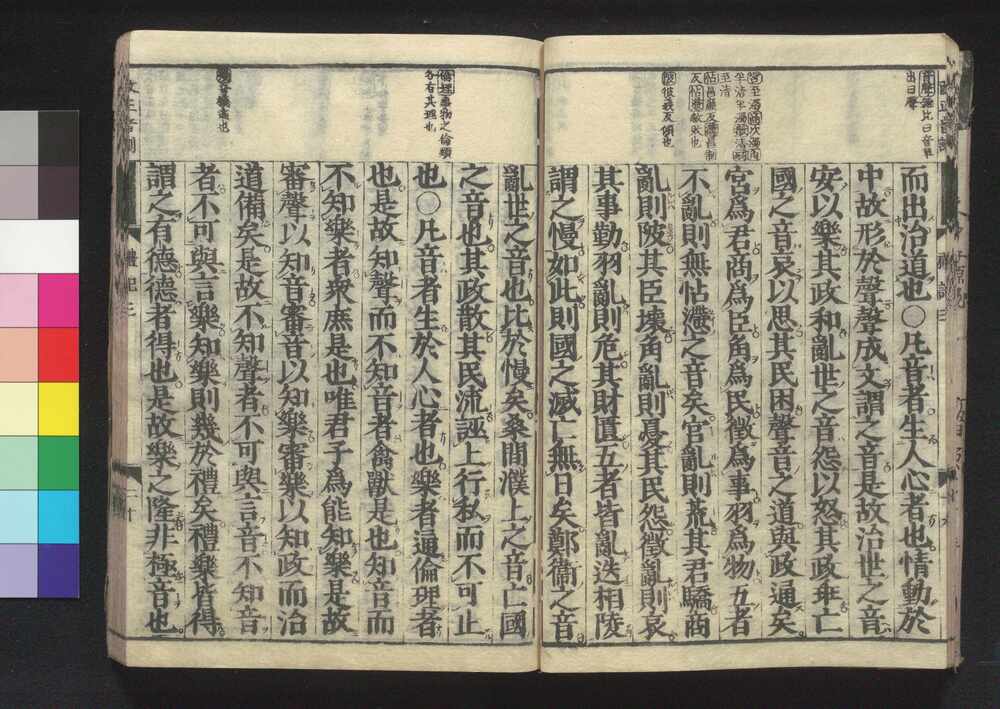 出曰聲
而出治道也○凡音者生人心者也情動於
中故形於聲聲成文謂之音是故治世之音
安以樂其政和亂世之音怨以怒其政乖亡
國之音哀以思其民困聲音之道與政通矣
宮爲君商爲臣角爲民徵爲事羽爲物五者
不亂則無怗懘之音矣官亂則荒其君驕商
亂則陂其臣壞角亂則憂其民怨徵亂則哀
其事勤羽亂則危其財匱五者皆亂迭相陵
謂之慢如此則國之滅亡無日矣鄭衞之音
倫理事物之倫類
各有其理也
亂世之音也比於慢矣桑間濮上之音亡國
之音也其政散其民流誣上行私而不可止
也○凡音者生於人心者也樂者通倫理者
也是故知聲而不知音者禽獸是也知音而
不知樂者衆庶是也唯君子爲能知樂是故
審聲以知音審音以知樂審樂以知政而治
道備矣是故不知聲者不可與言音不知音
者不可與言樂知樂則幾於禮矣禮樂皆得
謂之有德德者得也是故樂之隆非極音也
禮記三
二十